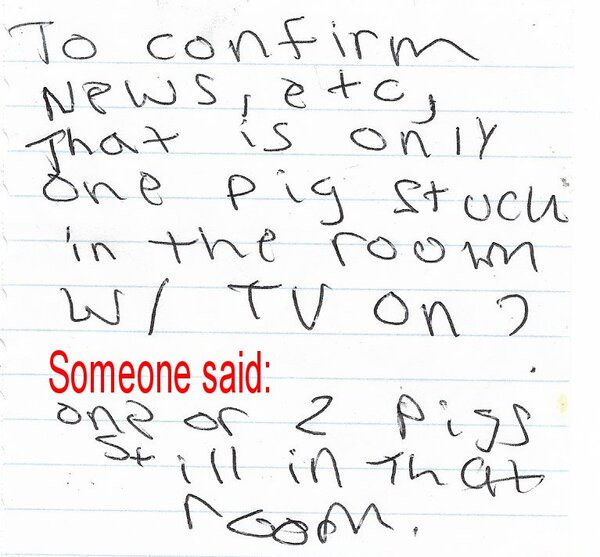 To confirm
news, etc,
That is only
one pig stuck
in the room
w/ TV on?
Someone said:
one or 2 pigs
still in that
room.